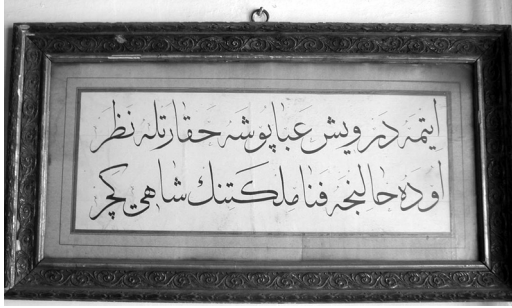 ايتمه درويش عباپوشه حقارتله نظر
اوده حالنجه فنا ملكتنك شاهی كچر